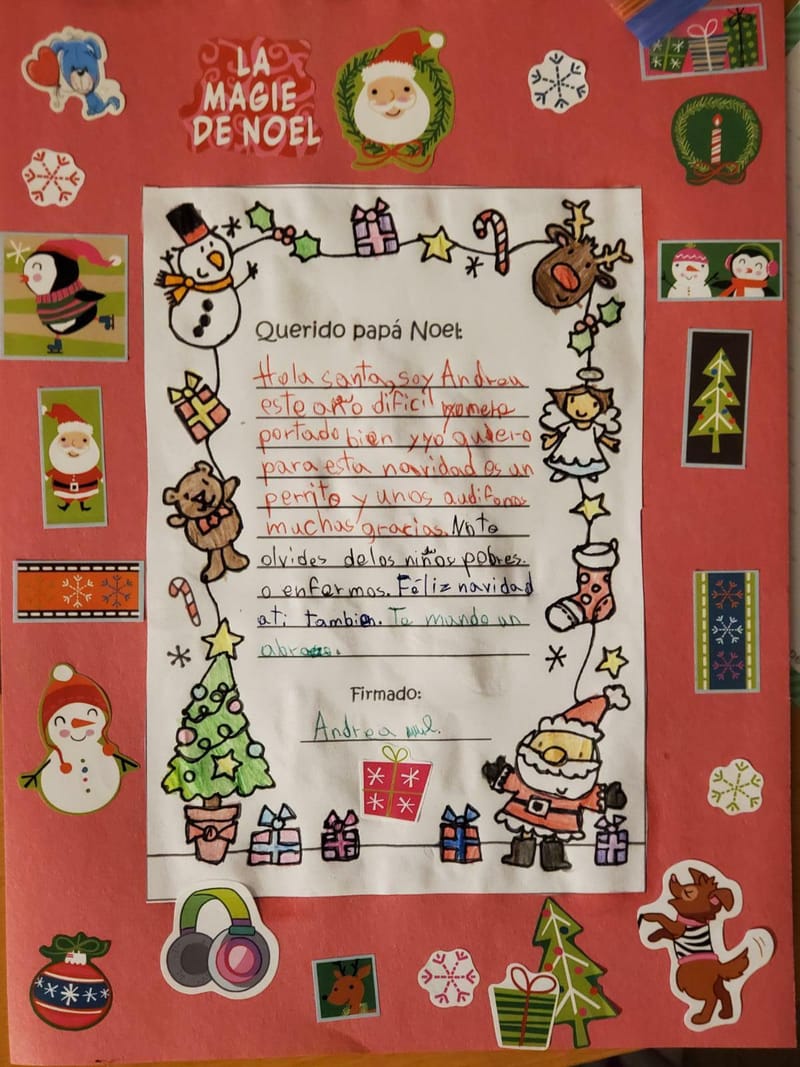 LA
MAGIE
DE NOEL
Querido papá Noel:
Hola santa, soy Andrea
este año dificil yo mete
portado bien y yo quiero
para esta navidad es un
perrito y unos audifonos
muchas gracias. No te
olvides de los niños pobres.
o enfermos. Féliz navidad
a ti tambien. Te mando un
abrazo.
Firmado:
Andrea